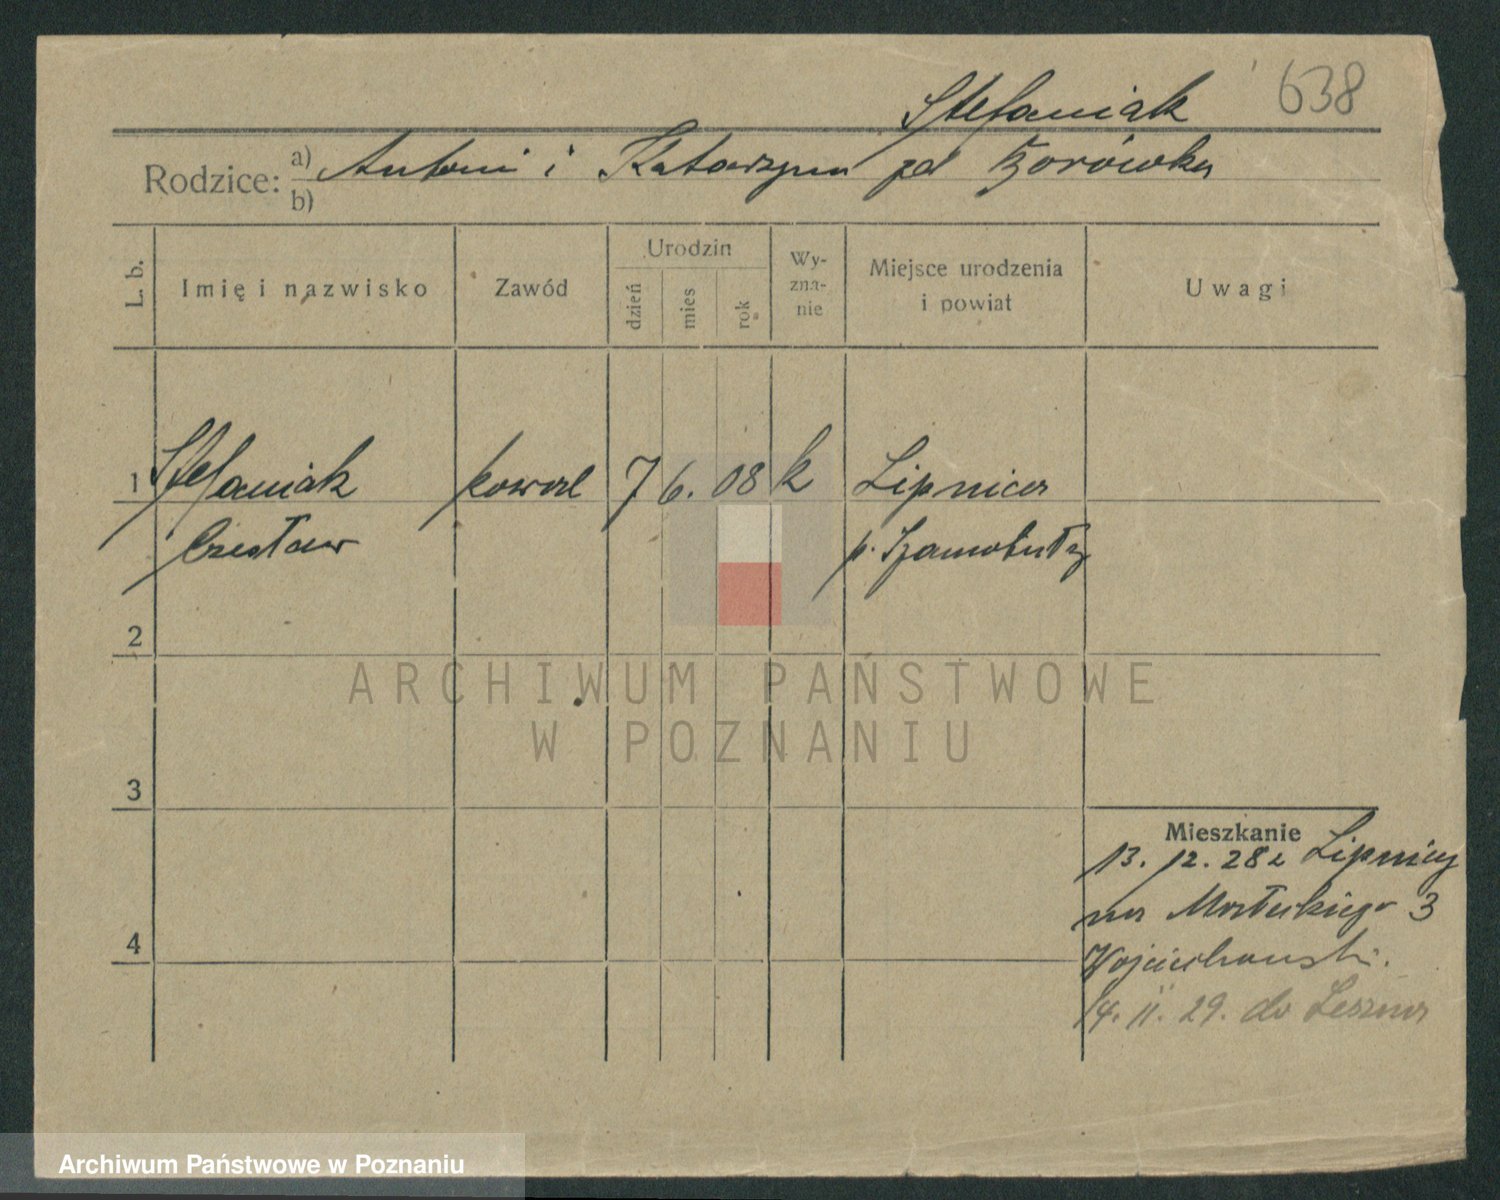 Stefaniak 638
Rodzice: a) Antoni i Katarzyna zd Borówka
b)
L. b. Imię i nazwisko Zawód Urodzin dzień mies rok Wy-zna-nie Miejsce urodzenia i powiat Uwagi
1 Stefaniak kowal 7 6. 08 k Lipnica
Czesław p. Szamotuły
2
ARCHIWUM PAŃSTWOWE
W POZNANIU
3
Mieszkanie
13. 12. 28 z Lipnicy
na 3
4
Wojciechowski.
14. II. 29. do Leszna
Archiwum Państwowe w Poznaniu